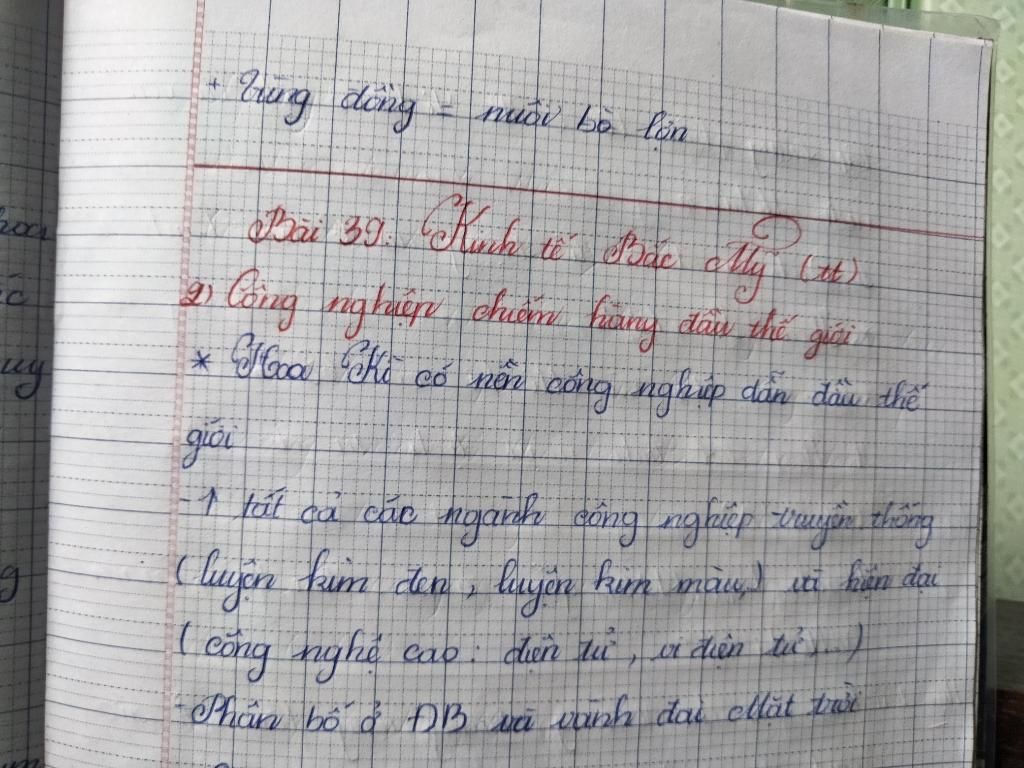 + Vùng đồng = nuôi bò lợn
Bài 39. Kinh tế Bắc Mỹ (tt)
2) Công nghiệp chiếm hàng đầu thế giới
* Hoa Kì có nền công nghiệp dẫn đầu thế
giới
- ↑ tất cả các ngành công nghiệp truyền thống
(luyện kim đen, luyện kim màu,) và hiện đại
(công nghệ cao: điện tử, vi điện tử,...)
- Phân bố ở ĐB và vành đai Mặt trời
uy
g